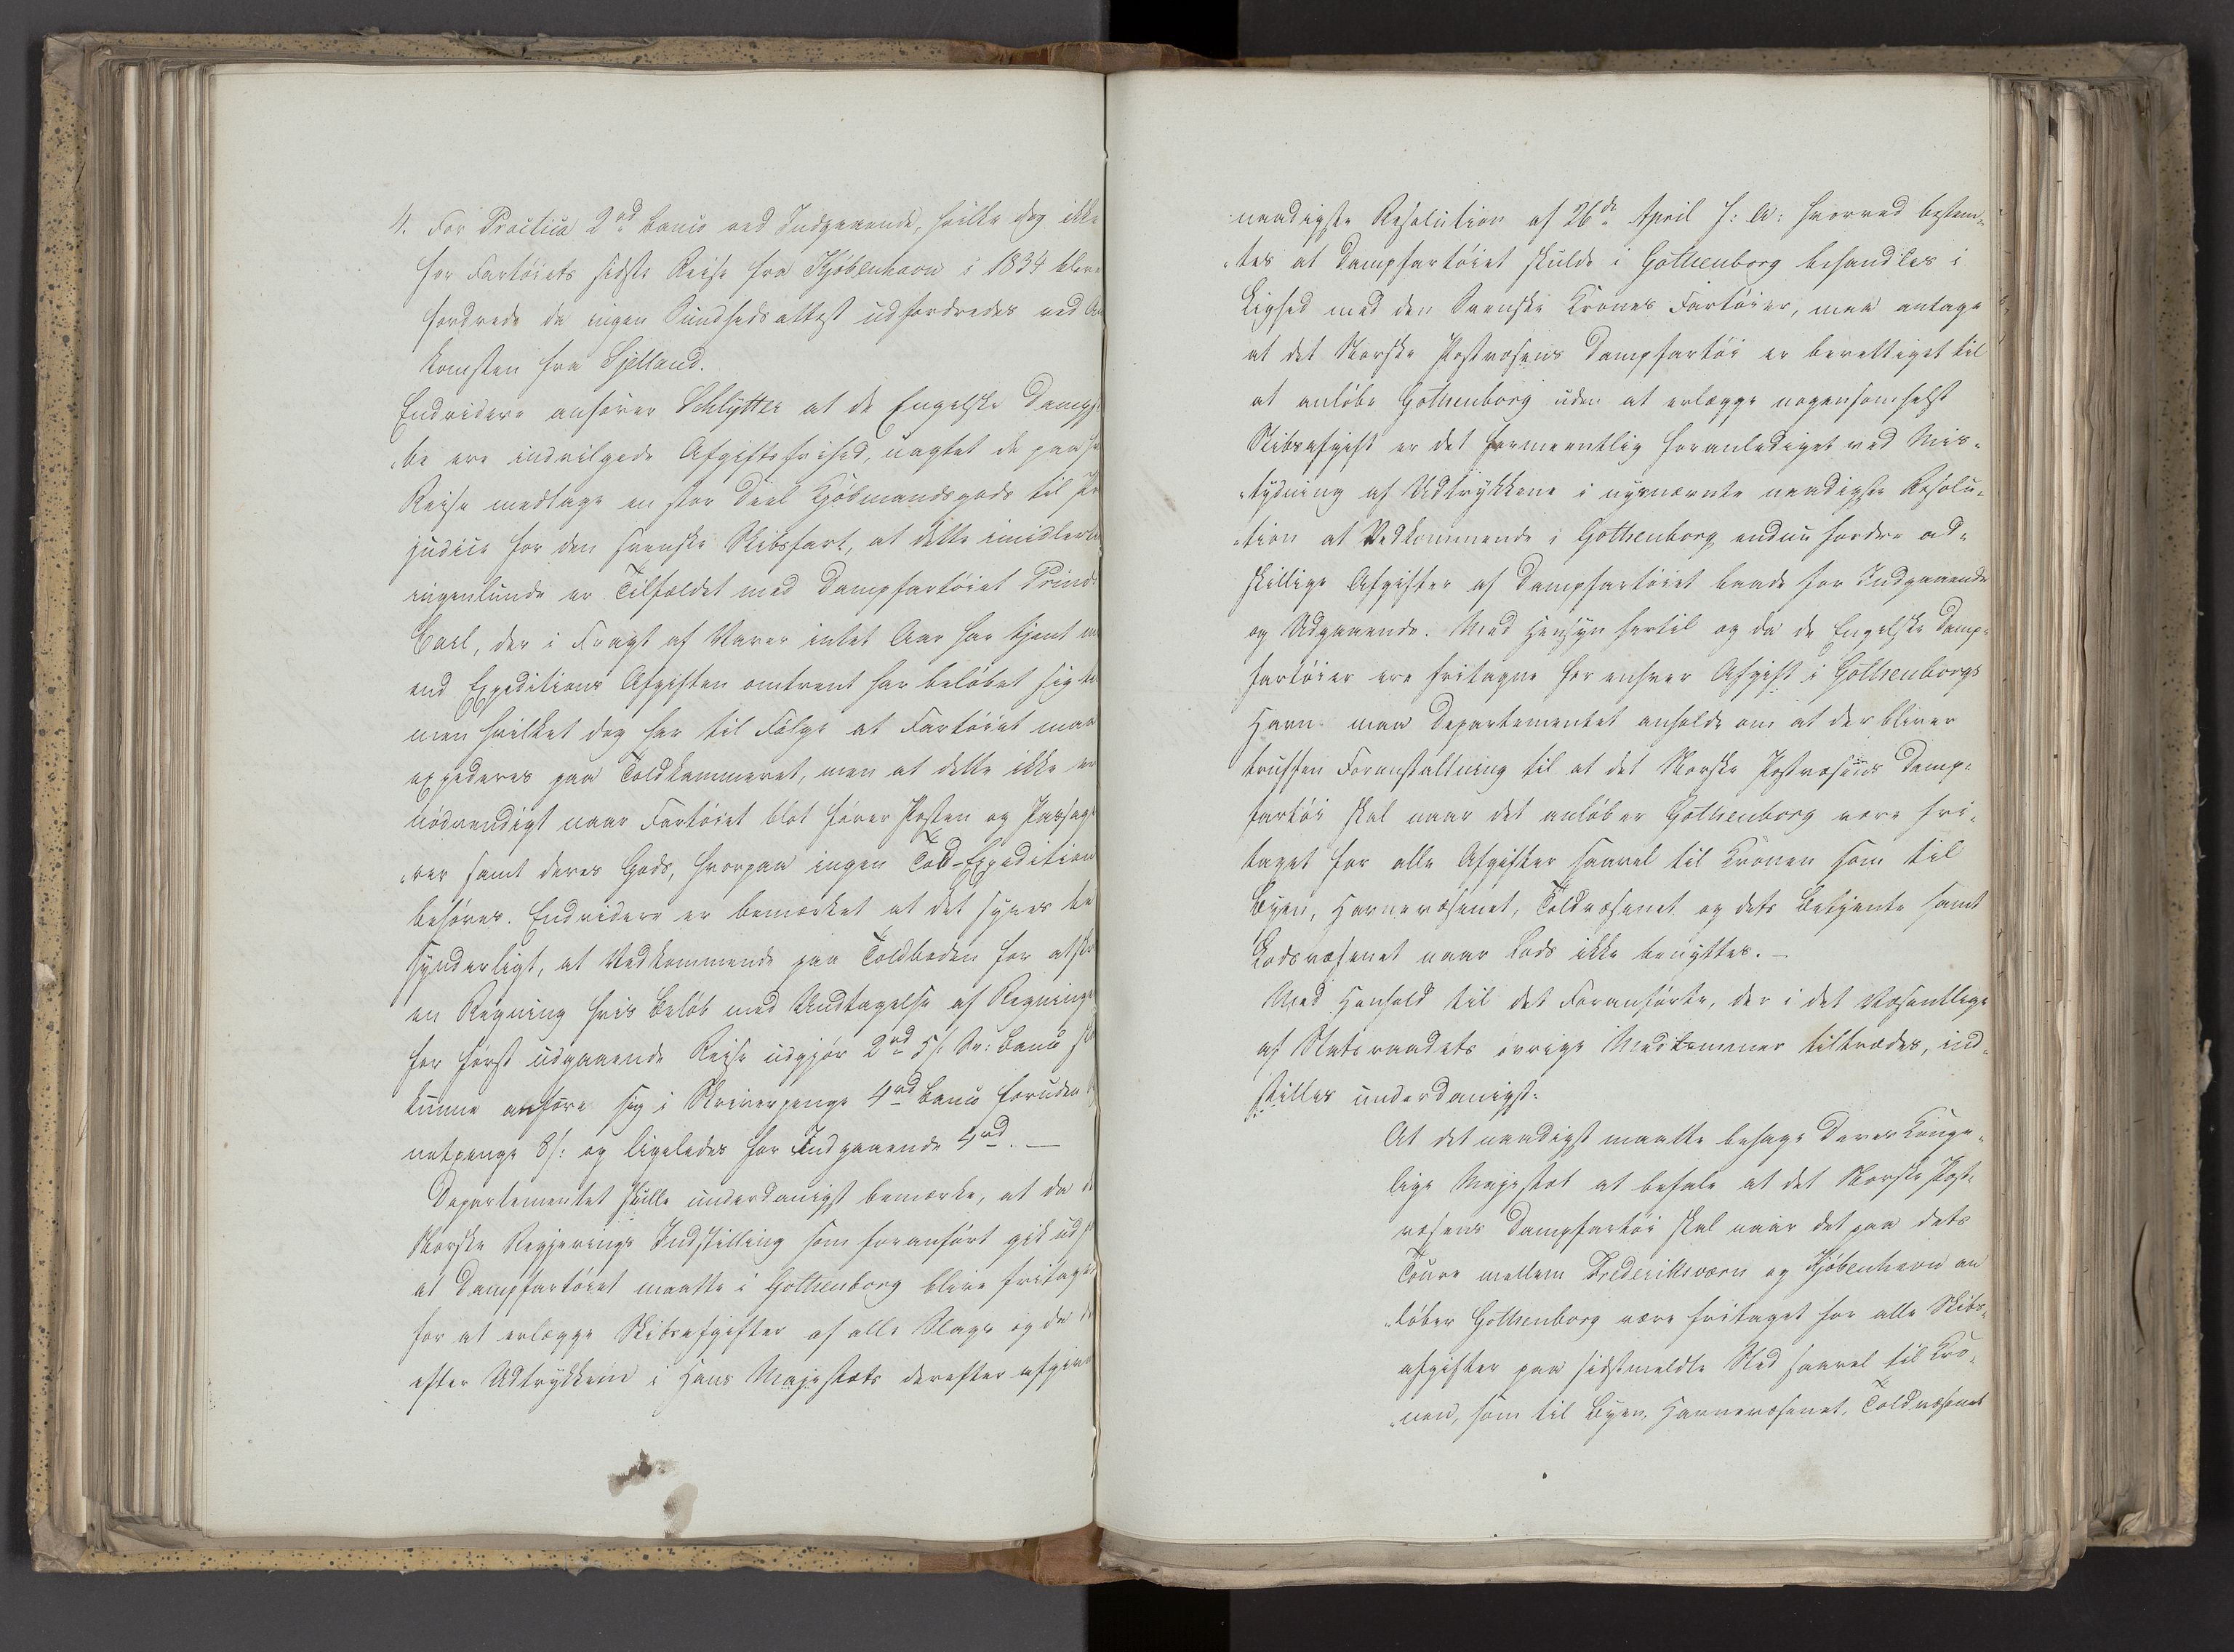 4. For Practica 2rd banco ved Indgaaende, hvilke dog ikke
for Fartöiets sidste Reise fra Kjöbenhavn i 1834 bleve
fordrede da ingen Sundhedsattest udfordredes ved An
komsten fra Sjelland.
Endvidere anförer Schlytter at de Engelske Dampski
be ere indvilgede Afgiftsfrihed, uagtet de paa
Reise medtage en stor Deel Kjöbmandsgods til Præ
judice for den svenske Skibsfart, at dette imidlertid
ingenlunde er Tilfældet med Dampfartöiet Prinds
Carl, der i Fragt af Varer intet Aar har tjent
end Expeditions Afgiften omtrent har belöbet sig til
men hvilket dog har til Fölge at Fartöiet maa
expederes paa Toldkammeret, men at dette ikke er
nödvendigt naar Fartöiet blot förer Posten og Passage
„rer samt deres Gods, hvorpaa ingen Told-Expedition
behöves. Endvidere er bemærket at det synes be
synderligt, at Vedkommende paa Toldboden for
en Regning hvis Belöb med Undtagelse af Regninge
for först udgaaende Reise udgjör 2rd 5s: Sv: banco
kunne anföre sig i Skriverpenge 4rd banco foruden
netpenge 8s: og ligeledes for Indgaaende 4rd. —
Departementet skulle underdanigst bemærke, at da
Norske Regjerings Indstilling som foranfört gik ud
at Dampfartöiet maatte i Gothenborg blive fritaget
for at erlægge Skibsafgifter af alle Slags og da
efter Udtrykkene i Hans Majestæts derefter afgivne
naadigste Resolution af 26de April f: A: hvorved bestem„
„tes at Dampfartöiet skulde i Gothenborg behandles i
Lighed med den Svenske Krones Fartöier, maa antage
at det Norske Postvæsens Dampfartöi er berettiget til
at anlöbe Gothenborg uden at erlægge nogensomhelst
Skibsafgift er det formeentlig foranlediget ved Mis„
„tydning af Udtrykkene i nysnævnte naadigste Resolu„
„tion at Vedkommende i Gothenborg endnu fordre ad„
skillige Afgifter af Dampfartöiet baade for Indgaaende
og Udgaaende. Med Hensyn hertil og da de Engelske Damp„
fartöier ere fritagne for enhver Afgift i Gothenborgs
Havn maa Departementet anholde om at der bliver
truffen Foranstaltning til at det Norske Postvæsens Damp„
fartöi skal naar det anlöber Gothenborg være fri„
taget for alle Afgifter saavel til Kronen som til
Byen, Havnevæsenet, Toldvæsenet og dets Betjente samt
Lodsvæsenet naar Lods ikke benyttes. —
Med Henhold til det Foranförte, der i det Væsentlige
af Statsraadets övrige Medlemmer tiltrædes, ind„
stilles underdanigst:
At det naadigst maatte behage Deres Konge„
lige Majestæt at befale at det Norske Post„
væsens Dampfartöi skal naar det paa dets
Toure mellem Frederiksværn og Kjöbenhavn an
„löber Gothenborg være fritaget for alle Skibs„
afgifter paa sidstmeldte Sted saavel til Kro„
„nen, som til Byen, Havnevæsenet, Toldvæsenet